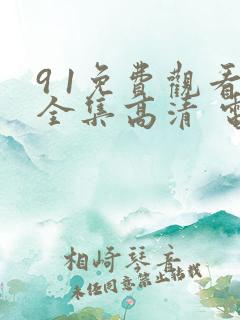 91免費觀看
全集高清 電
相崎琴音
未任同意禁止转载